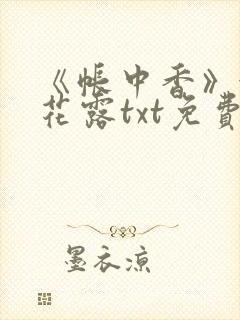 《帐中香》
花露txt免费
墨衣凉